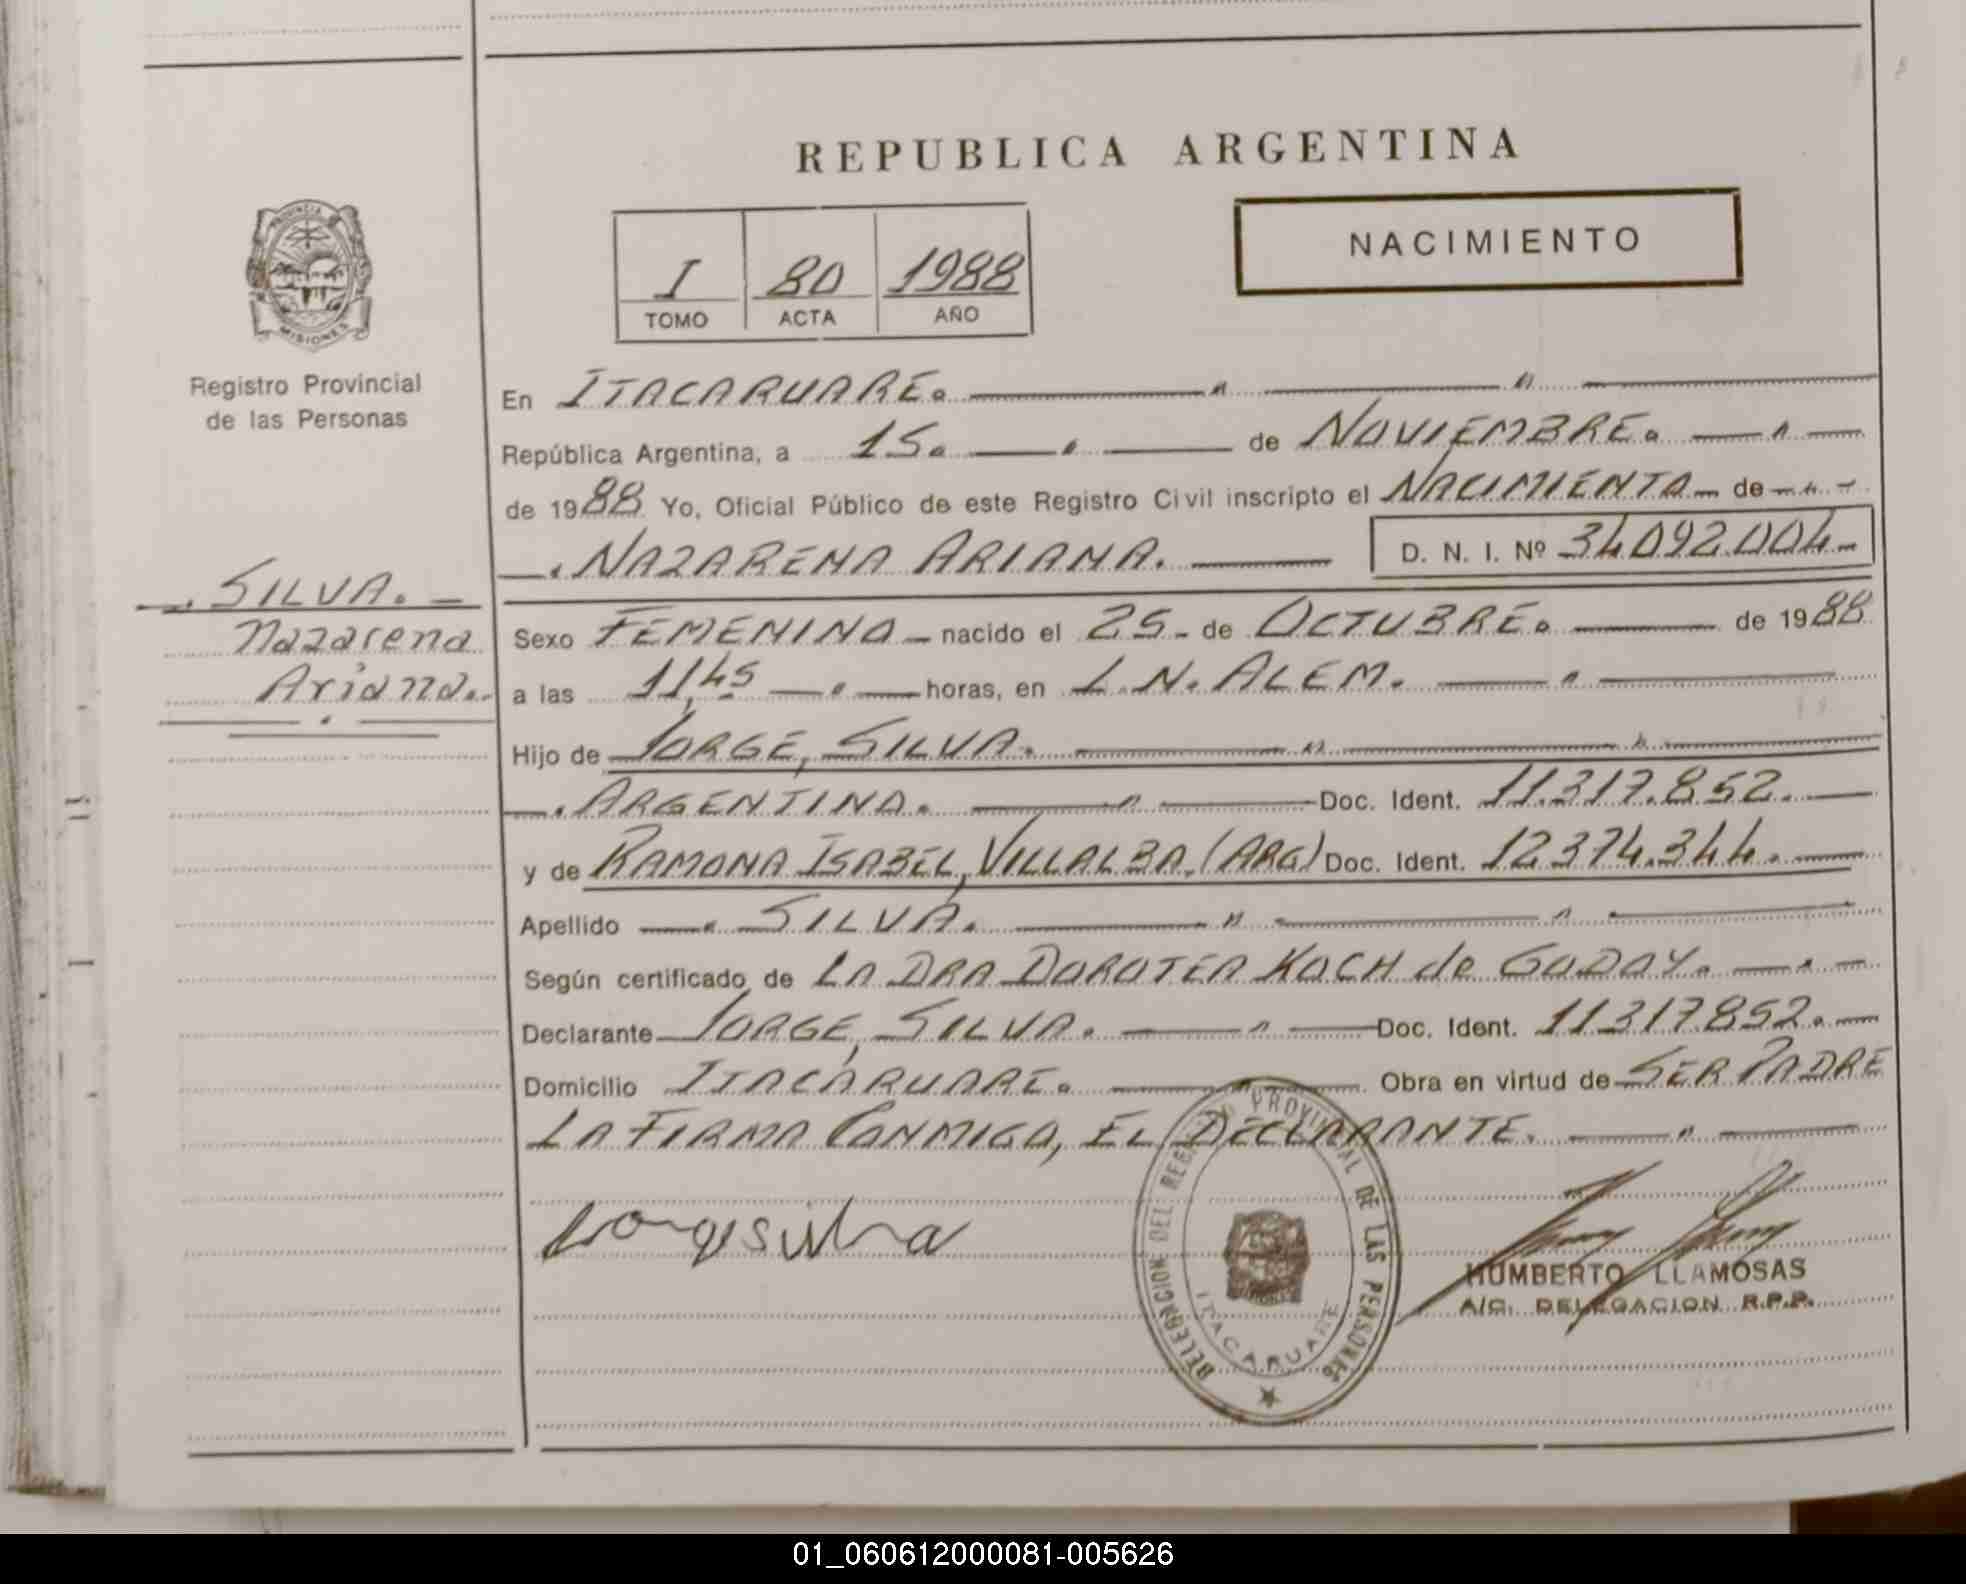 REPUBLICA ARGENTINA
PROVINCIA
MISIONES
Registro Provincial
de las Personas
I 80 1988
TOMO ACTA AÑO
NACIMIENTO
En ITACARUARE.
República Argentina, a 15. de NOVIEMBRE.
de 1988 Yo, Oficial Público de este Registro Civil inscripto el NACIMIENTO de
NAZARENA ARIANA. D. N. I. Nº 34092.004
SILVA.
Nazarena
Ariana.
Sexo FEMENINO nacido el 25 de OCTUBRE. de 1988
a las 11,45 horas, en L.N. ALEM.
Hijo de JORGE, SILVA.
ARGENTINO. Doc. Ident. 11.317.852.
y de RAMONA ISABEL, VILLALBA. (ARG) Doc. Ident. 12374.344.
Apellido SILVA.
Según certificado de LA DRA DOROTEA KOCH de GODOY.
Declarante JORGE, SILVA. Doc. Ident. 11317852.
Domicilio ITACARUARE. Obra en virtud de SER PADRE
LA FIRMA CONMIGO, EL DECLARANTE.
DELEGACION DEL REGISTRO PROVINCIAL DE LAS PERSONAS
ITACARUARE
HUMBERTO LLAMOSAS
A/C. DELEGACION R.P.P.
01_060612000081-005626